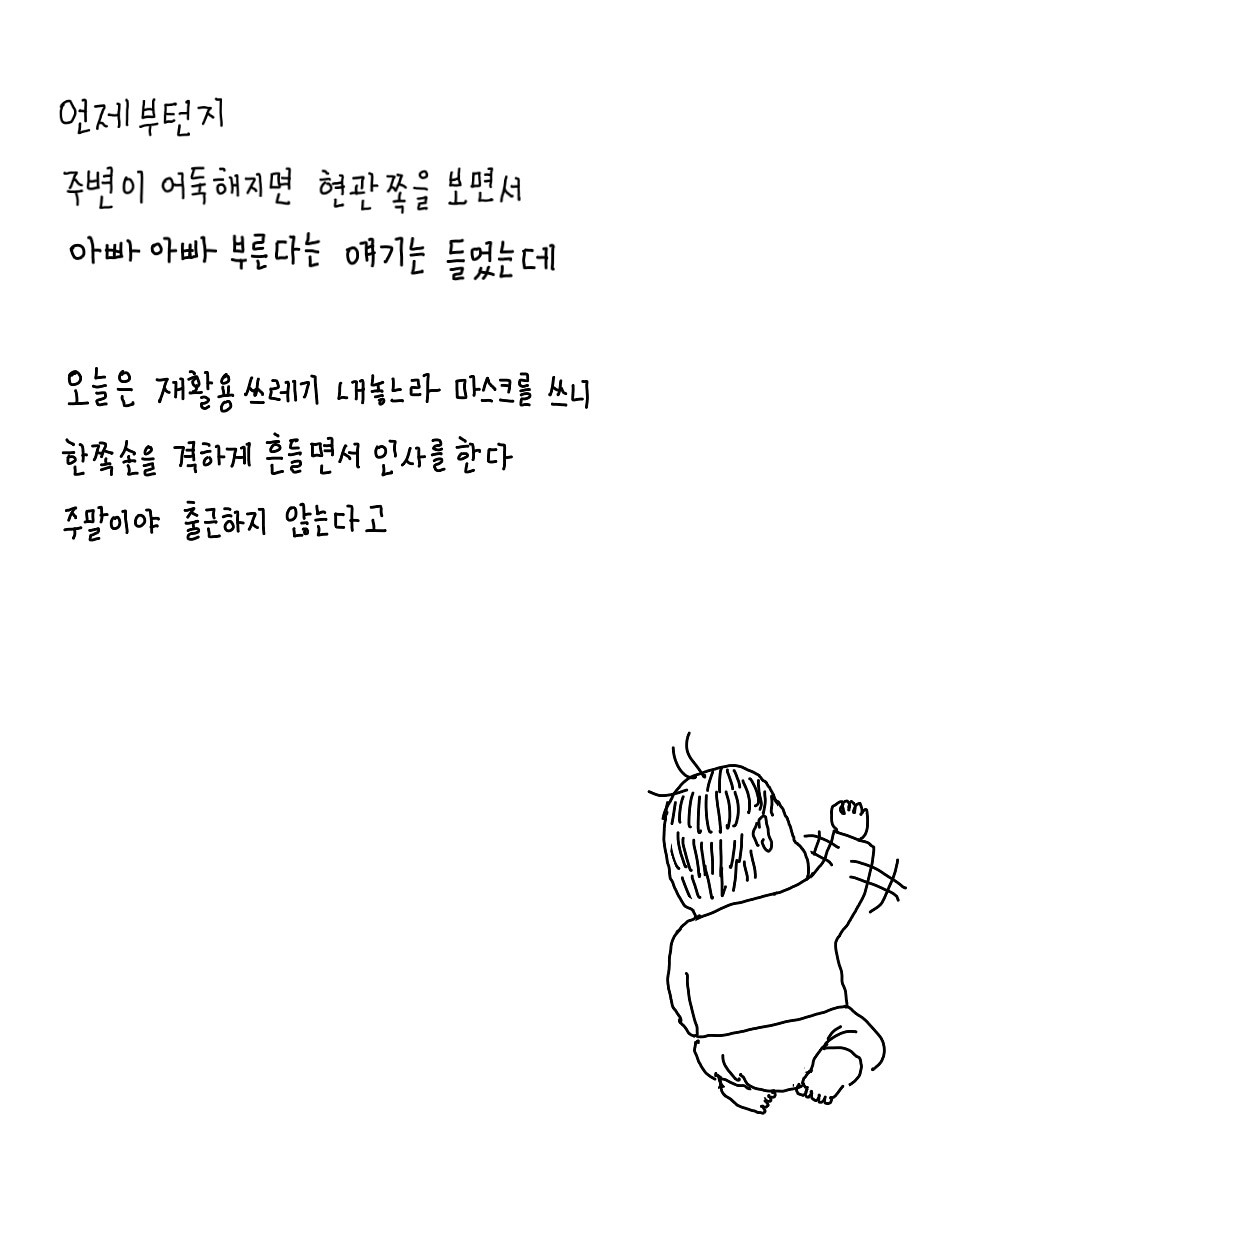 언제부턴지
주변이 어둑해지면 현관쪽을 보면서
아빠 아빠 부른다는 얘기는 들었는데
오늘은 재활용쓰레기 내놓느라 마스크를 쓰니
한쪽손을 격하게 흔들면서 인사를 한다
주말이야 출근하지 않는다고